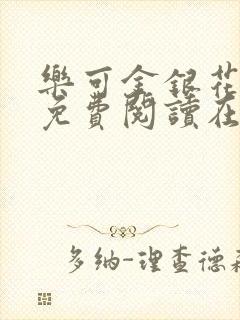 樂可金銀花
免費閱讀在
多納-理查德森